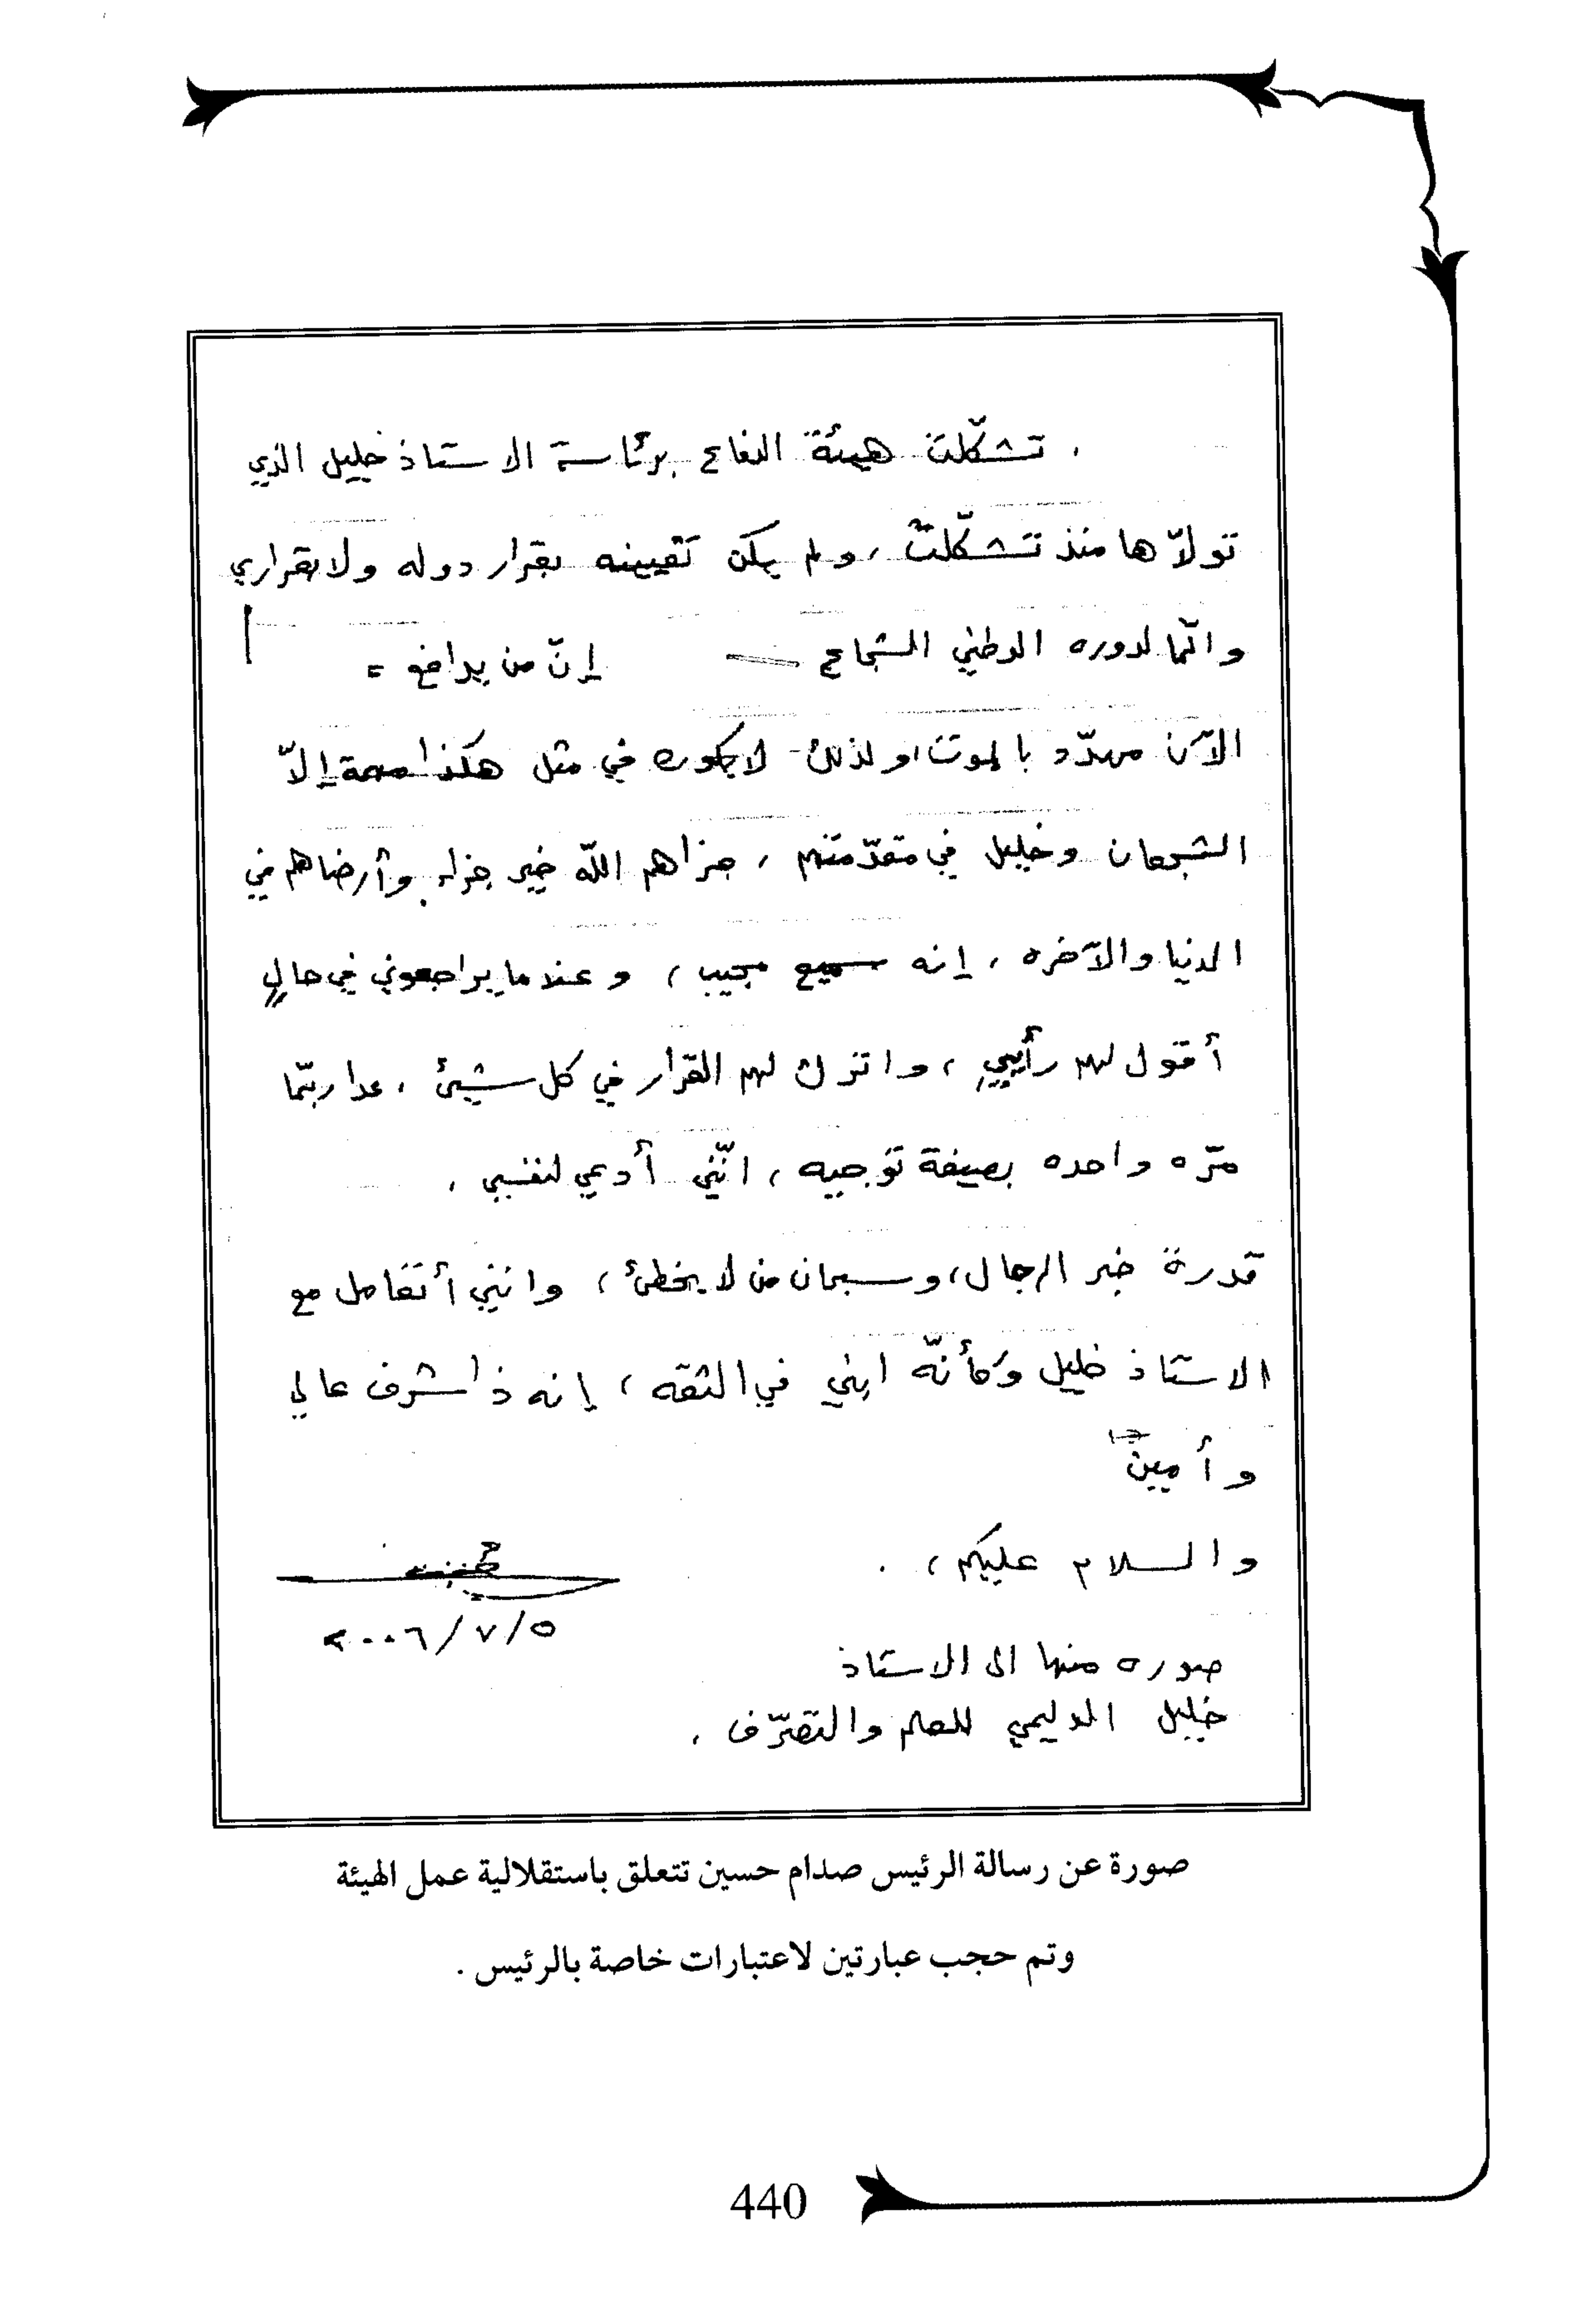 . تشكّلت هيئة الدفاع برئاسة الاستاذ خليل الذي
تولاّها منذ تشكّلت، ولم يكن تعيينه بقرار دوله ولا بقراري
وانّما لدوره الوطني الشجاع إنّ من يدافع =
الآن مهدّد بالموت، ولذلك لا يكون في مثل هكذا مهمة إلاّ
الشجعان وخليل في مقدّمتهم، جزاهم اللّه خير جزاء وأرضاهم في
الدنيا والآخره، إنه سميع مجيب، وعندما يراجعوني في حالٍ
أقول لهم رأيي، واترك لهم القرار في كل شيئ، عدا ربّما
مرّه واحده بصيغة توجيه، انّني أدعي لنفسي،
قدرة خبر الرجال، وسبحان من لا يخطئ، وانني أتعامل مع
الاستاذ خليل وكأنّه ابني في الثقه، إنه ذا شرف عالي
وأمين
والسلام عليكم، .
٢٠٠٦/٧/٥
صوره منها الى الاستاذ
خليل الدليمي للعلم والتصرّف .
صورة عن رسالة الرئيس صدام حسين تتعلق باستقلالية عمل الهيئة
وتم حجب عبارتين لاعتبارات خاصة بالرئيس .
440